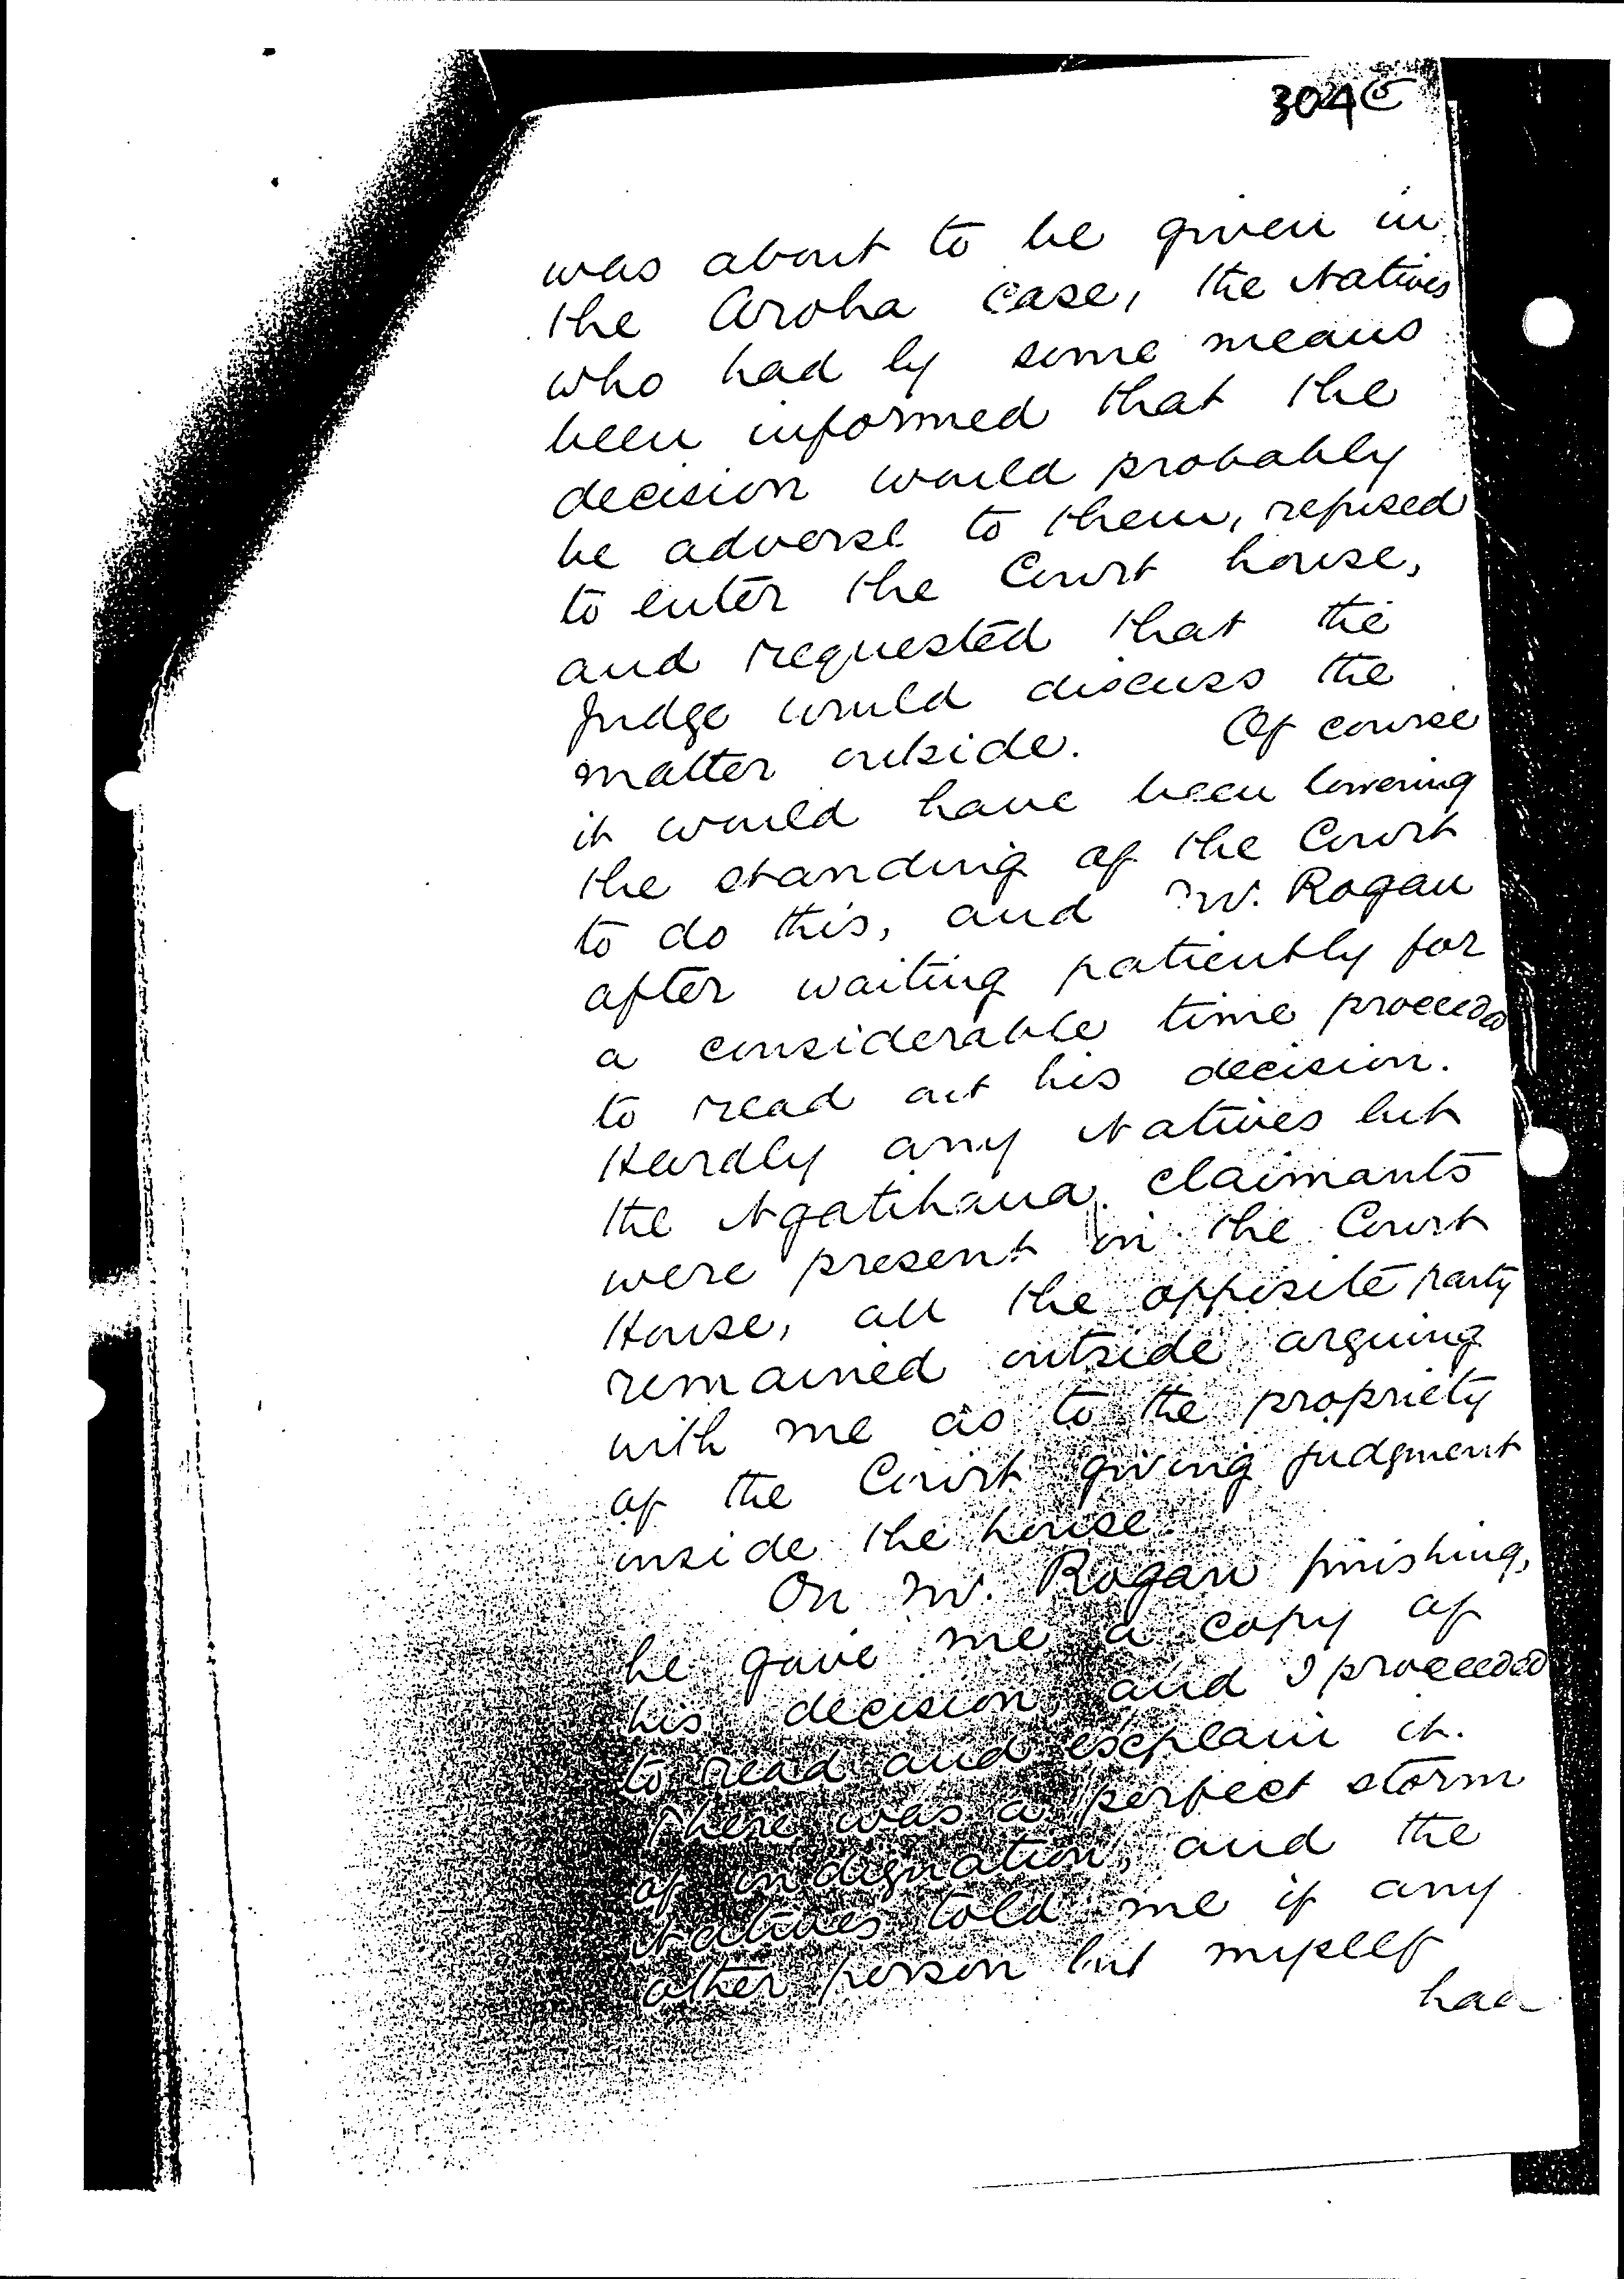 304
was about to be given in
the Aroha case, the Natives
who had by some means
been informed that the
decision would probably
be adverse to them, refused
to enter the Court house,
and requested that the
Judge would discuss the
matter outside. Of course
it would have been lowering
the standing of the Court
to do this, and Mr. Rogan
after waiting patiently for
a considerable time proceeded
to read out his decision.
Hardly any Natives but
the Ngatihaua claimants
were present in the Court
House, all the opposite party
remained outside arguing
with me as to the propriety
of the Court giving judgment
inside the house.
On Mr. Rogan finishing,
he gave me a copy of
his decision, and I proceeded
to read and explain it.
There was a perfect storm
of indignation, and the
Natives told me if any
other person but myself
had